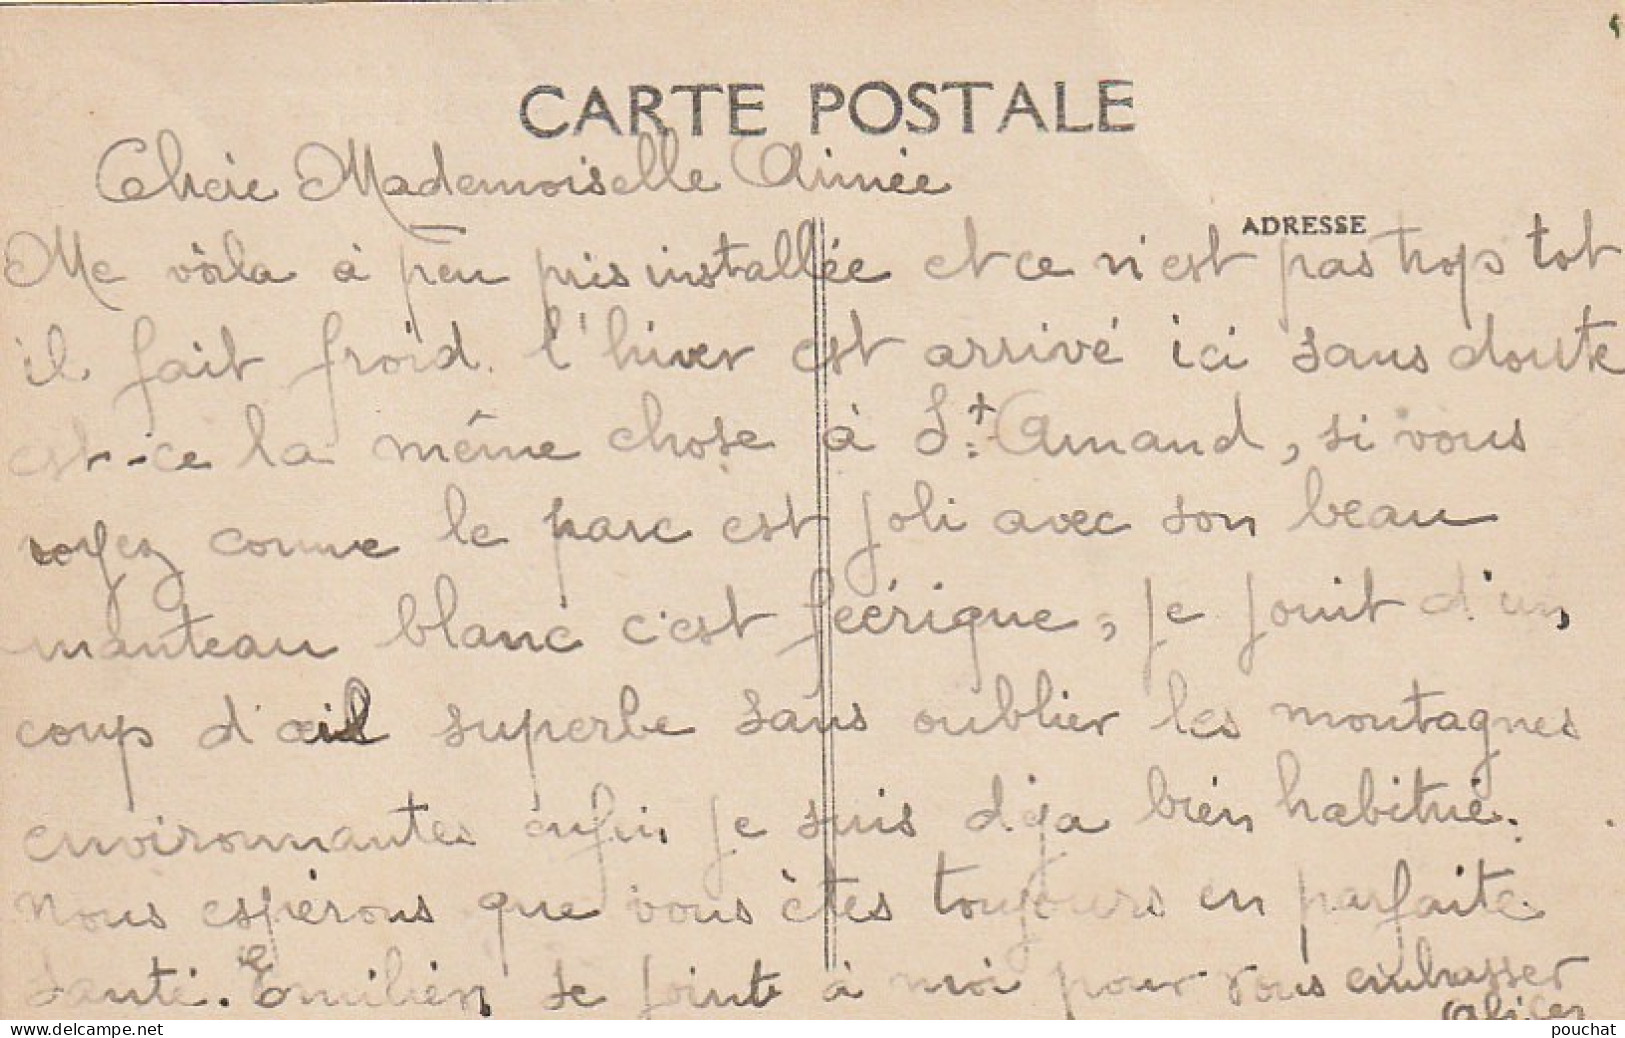 CARTE POSTALE
Chère Mademoiselle Aimée
ADRESSE
Me voila à peu près installée et ce n'est pas trop tot
il fait froid. l'hiver est arrivé ici sans doute
est-ce la même chose à St Amand, si vous
voyez comme le parc est joli avec son beau
manteau blanc c'est feérique, je jouit d'un
coup d'œil superbe sans oublier les montagnes
environnantes enfin je suis déja bien habitué.
Nous espérons que vous êtes toujours en parfaite
santé. Emilien se joint à moi pour vous embrasser
Alice
pouchat